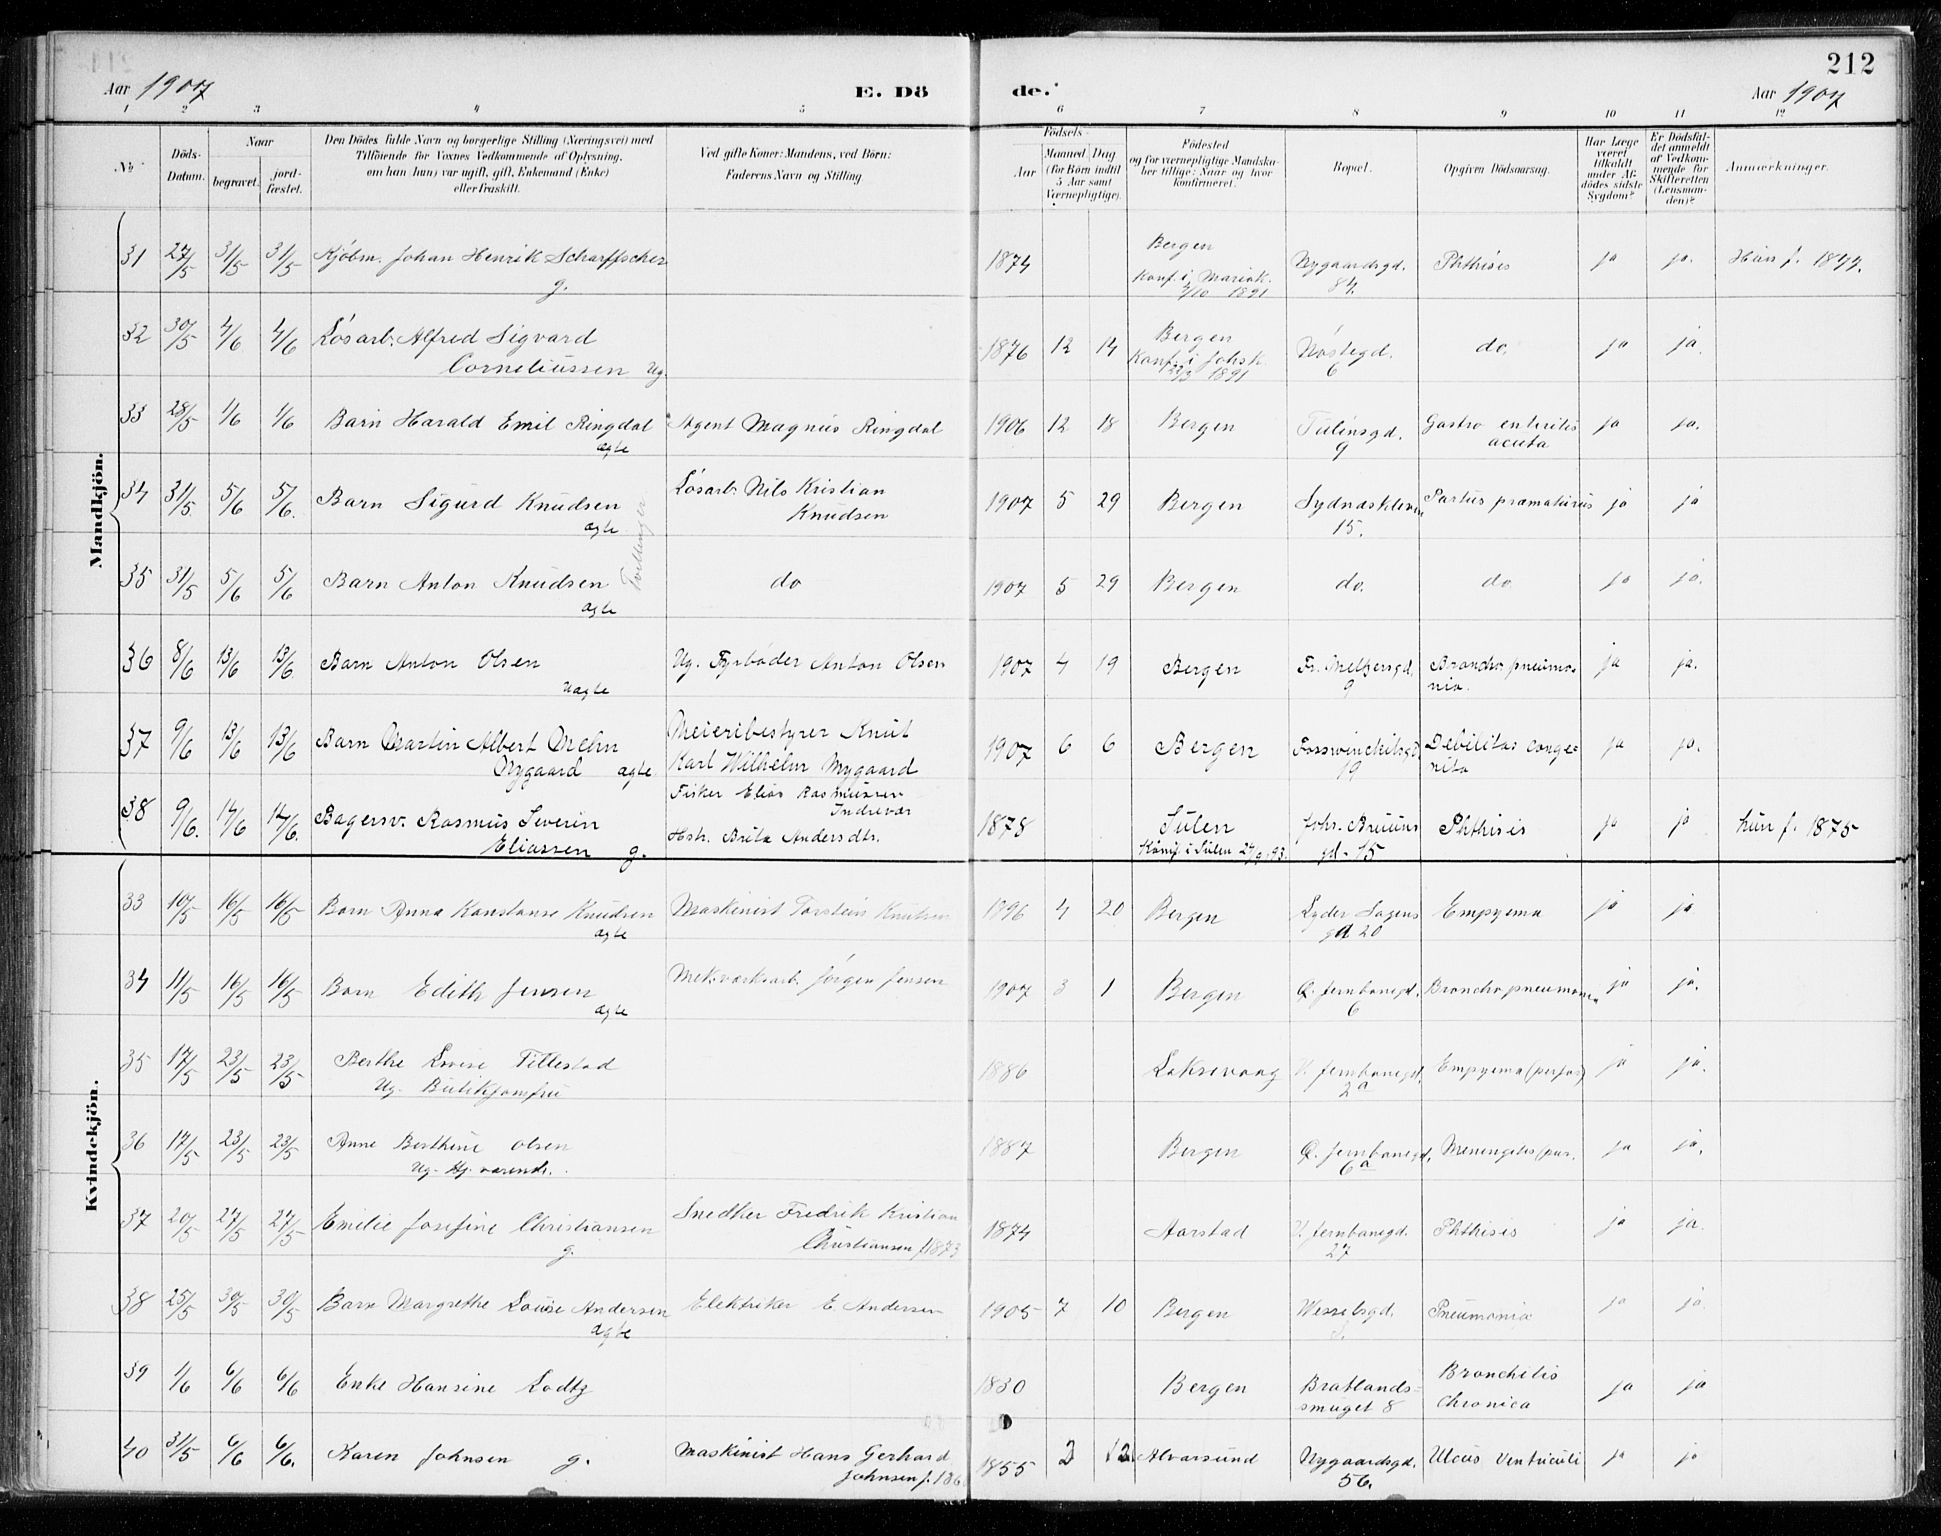 212
Aar 1907
E. Dö de.
Aar 1907
1 2 3 4 5 6 7 8 9 10 11 12
No
Döds-Datum.
Naar
begravet.
jord-fæstet.
Den Dödes fulde Navn og borgerlige Stilling (Næringsvei) med
Tilföiende for Voxnes Vedkommende af Oplysning,
om han (hun) var ugift, gift, Enkemand (Enke)
eller fraskilt.
Ved gifte Koner: Mandens, ved Börn:
Faderens Navn og Stilling.
Födsels-
Aar
Maaned Dag
(for Börn indtil
5 Aar samt
Værnepligtige).
Födested
og for værnepligtige Mandska-
ber tillige: Naar og hvor
konfirmeret.
Bopæl.
Opgiven Dödsaarsag.
Har Læge
været
tilkaldt
under Af-
dödes sidste
Sygdom?
Er Dödsfal-
det anmeldt
af Vedkom-
mende for
Skifteretten
(Lensman-
den)?
Anmærkninger.
Mandkjön.
31 27/5 31/5 31/5 Kjøbm. Johan Henrik Scharffscher g. 1874 Bergen Konf. i Mariak. 4/10 1891 Nygaardsgd. 84. Phthisis ja ja. Hün f. 1877.
32 30/5 4/6 4/6 Løsarb. Alfred Sigvard Corneliüssen Ug. 1876 12 14 Bergen Konf. i Johsk. 22/3 1891 Nøstegd. 6 do. ja ja.
33 28/5 1/6 1/6 Barn Harald Emil Ringdal ægte Agent Magnüs Ringdal 1906 12 18 Bergen Tülinsgd. 9 Gastro enteritis acuta ja ja.
34 31/5 5/6 5/6. Barn Sigürd Knüdsen ægte Løsarb. Nils Kristian Knüdsen 1907 5 29 Bergen Sydnæskleven 15. Partüs præmatürüs ja ja
Tvillinger
35 31/5 5/6 5/6 Barn Anton Knüdsen ægte do 1907 5 29 Bergen do. do ja ja.
36 8/6 13/6 13/6. Barn Anton Olsen uægte Ug. Fyrbøder Anton Olsen 1907 4 19 Bergen Fr. Meltzersgd. 9 Broncho pneumo-nia. ja ja.
37 9/6 13/6 13/6 Barn Martin Albert Mehn Nygaard ægte Meieribestyrer Knüt Karl Wilhelm Nygaard 1907 6 6 Bergen Fosswinckelsgd. 19 Debilitas conge-nita ja ja.
38 9/6. 14/6 14/6. Bagersv. Rasmüs Severin Eliassen g. Fisker Elias Rasmüssen Indrevær Hstr. Brita Andersdtr. 1878 Sülen Konf. i Sülen 24/9 93. Joh. Brüüns gd. 15 Phthisis ja ja hün f. 1875
Kvindekjön.
33 10/5 16/5 16/5 Barn Anna Konstanse Knüdsen ægte Maskinist Torstein Knütsen 1896 4 20 Bergen Lyder Sagens gd 20 Empyema ja ja
34 11/5 16/5 16/5 Barn Edith Jensen ægte Mek.værksarb. Jørgen Jensen 1907 3 1 Bergen Ø. Jernbanegd. 6 Broncho pneumonia ja ja.
35 17/5 23/5 23/5 Berthe Lovise Tillestad Ug. Bütikjomfrü 1886 Laksevaag V. Jernbanegd. 2a Empyema (perfor) ja ja.
36 17/5 23/5 23/5 Anne Berthine Olsen Ug. Hj. værende. 1887 Bergen Ø. Jernbanegd. 6a Meningitis (pur. ja ja.
37 20/5 27/5 27/5 Emilie Josefine Christiansen g. Snedker Fredrik Kristian Christiansen f. 1873 1874 Aarstad V. Jernbanegd. 27 Phthisis ja ja.
38 25/5 30/5 30/5 Barn Margrethe Louise Andersen ægte Elektriker E. Andersen 1905 7 10 Bergen Wesselsgd. Pneumonia ja ja.
39 1/6 6/6 6/6 Enke Hansine Lodtz 1830 Bergen Bratlands-smuget 8 Bronchitis Chronica ja ja
40 31/5 6/6 6/6. Karen Johnsen g. Maskinist Hans Gerhard Johnsen f. 186 1855 2 12 Alversund Nygaardsgd. 56. Ulcus Ventriculi ja ja